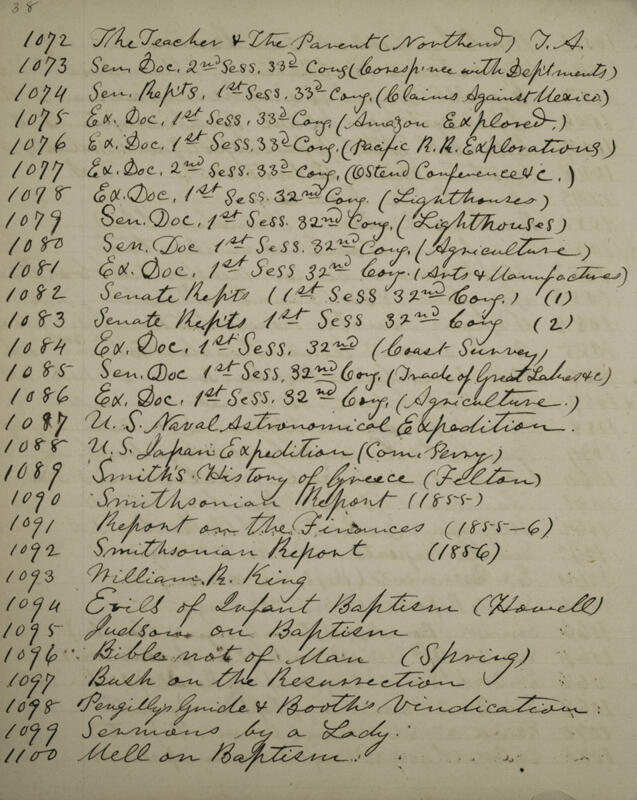 38
1072 The Teacher & The Parent (Northend) T.A.
1073 Sen. Doc. 2nd Sess. 33d Cong (Corespince with Deptments)
1074 Sen. Repts, 1st Sess. 33d Cong. (Claims Against Mexico)
1075 Ex. Doc, 1st Sess. 33d Cong. (Amazon Explored.)
1076 Ex. Doc. 1st Sess. 33d Cong. (Pacific R.R. Explorations)
1077 Ex. Doc, 2nd Sess. 33d Cong. (Ostend Conference &c.)
1078 Ex. Doc, 1st Sess. 32nd Cong. (Lighthouses)
1079 Sen. Doc, 1st Sess. 32nd Cong. (Lighthouses)
1080 Sen. Doc 1st Sess. 32nd Cong. (Agriculture)
1081 Ex. Doc, 1st Sess 32nd Cong. (Arts & Manufactures)
1082 Senate Repts (1st Sess 32nd Cong.) (1)
1083 Senate Repts 1st Sess 32nd Cong (2)
1084 Ex. Doc. 1st Sess. 32nd (Coast Survey)
1085 Sen. Doc 1st Sess. 32nd Cong. (Trade of Great Lakes &c)
1086 Ex. Doc. 1st Sess. 32nd Cong. (Agriculture.)
1087 U.S. Naval Astronomical Expedition.
1088 U.S. Japan Expedition (Com. Perry)
1089 Smith's History of Greece (Felton)
1090 Smithsonian Report (1855)
1091 Report on the Finances (1855-6)
1092 Smithsonian Report (1856)
1093 William R. King
1094 Evils of Infant Baptism (Howell)
1095 Judson on Baptism
1096 Bible not of Man (Spring)
1097 Bush on the Resurrection
1098 Pengilly's Guide & Booth's Vindication.
1099 Sermons by a Lady.
1100 Mell on Baptism.